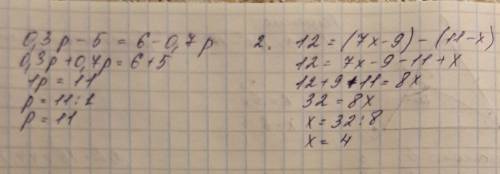 0,3p - 5 = 6 - 0,7p
0,3p + 0,7p = 6 + 5
1p = 11
p = 11 : 1
p = 11
2. 12 = (7x - 9) - (11 - x)
12 = 7x - 9 - 11 + x
12 + 9 + 11 = 8x
32 = 8x
x = 32 : 8
x = 4